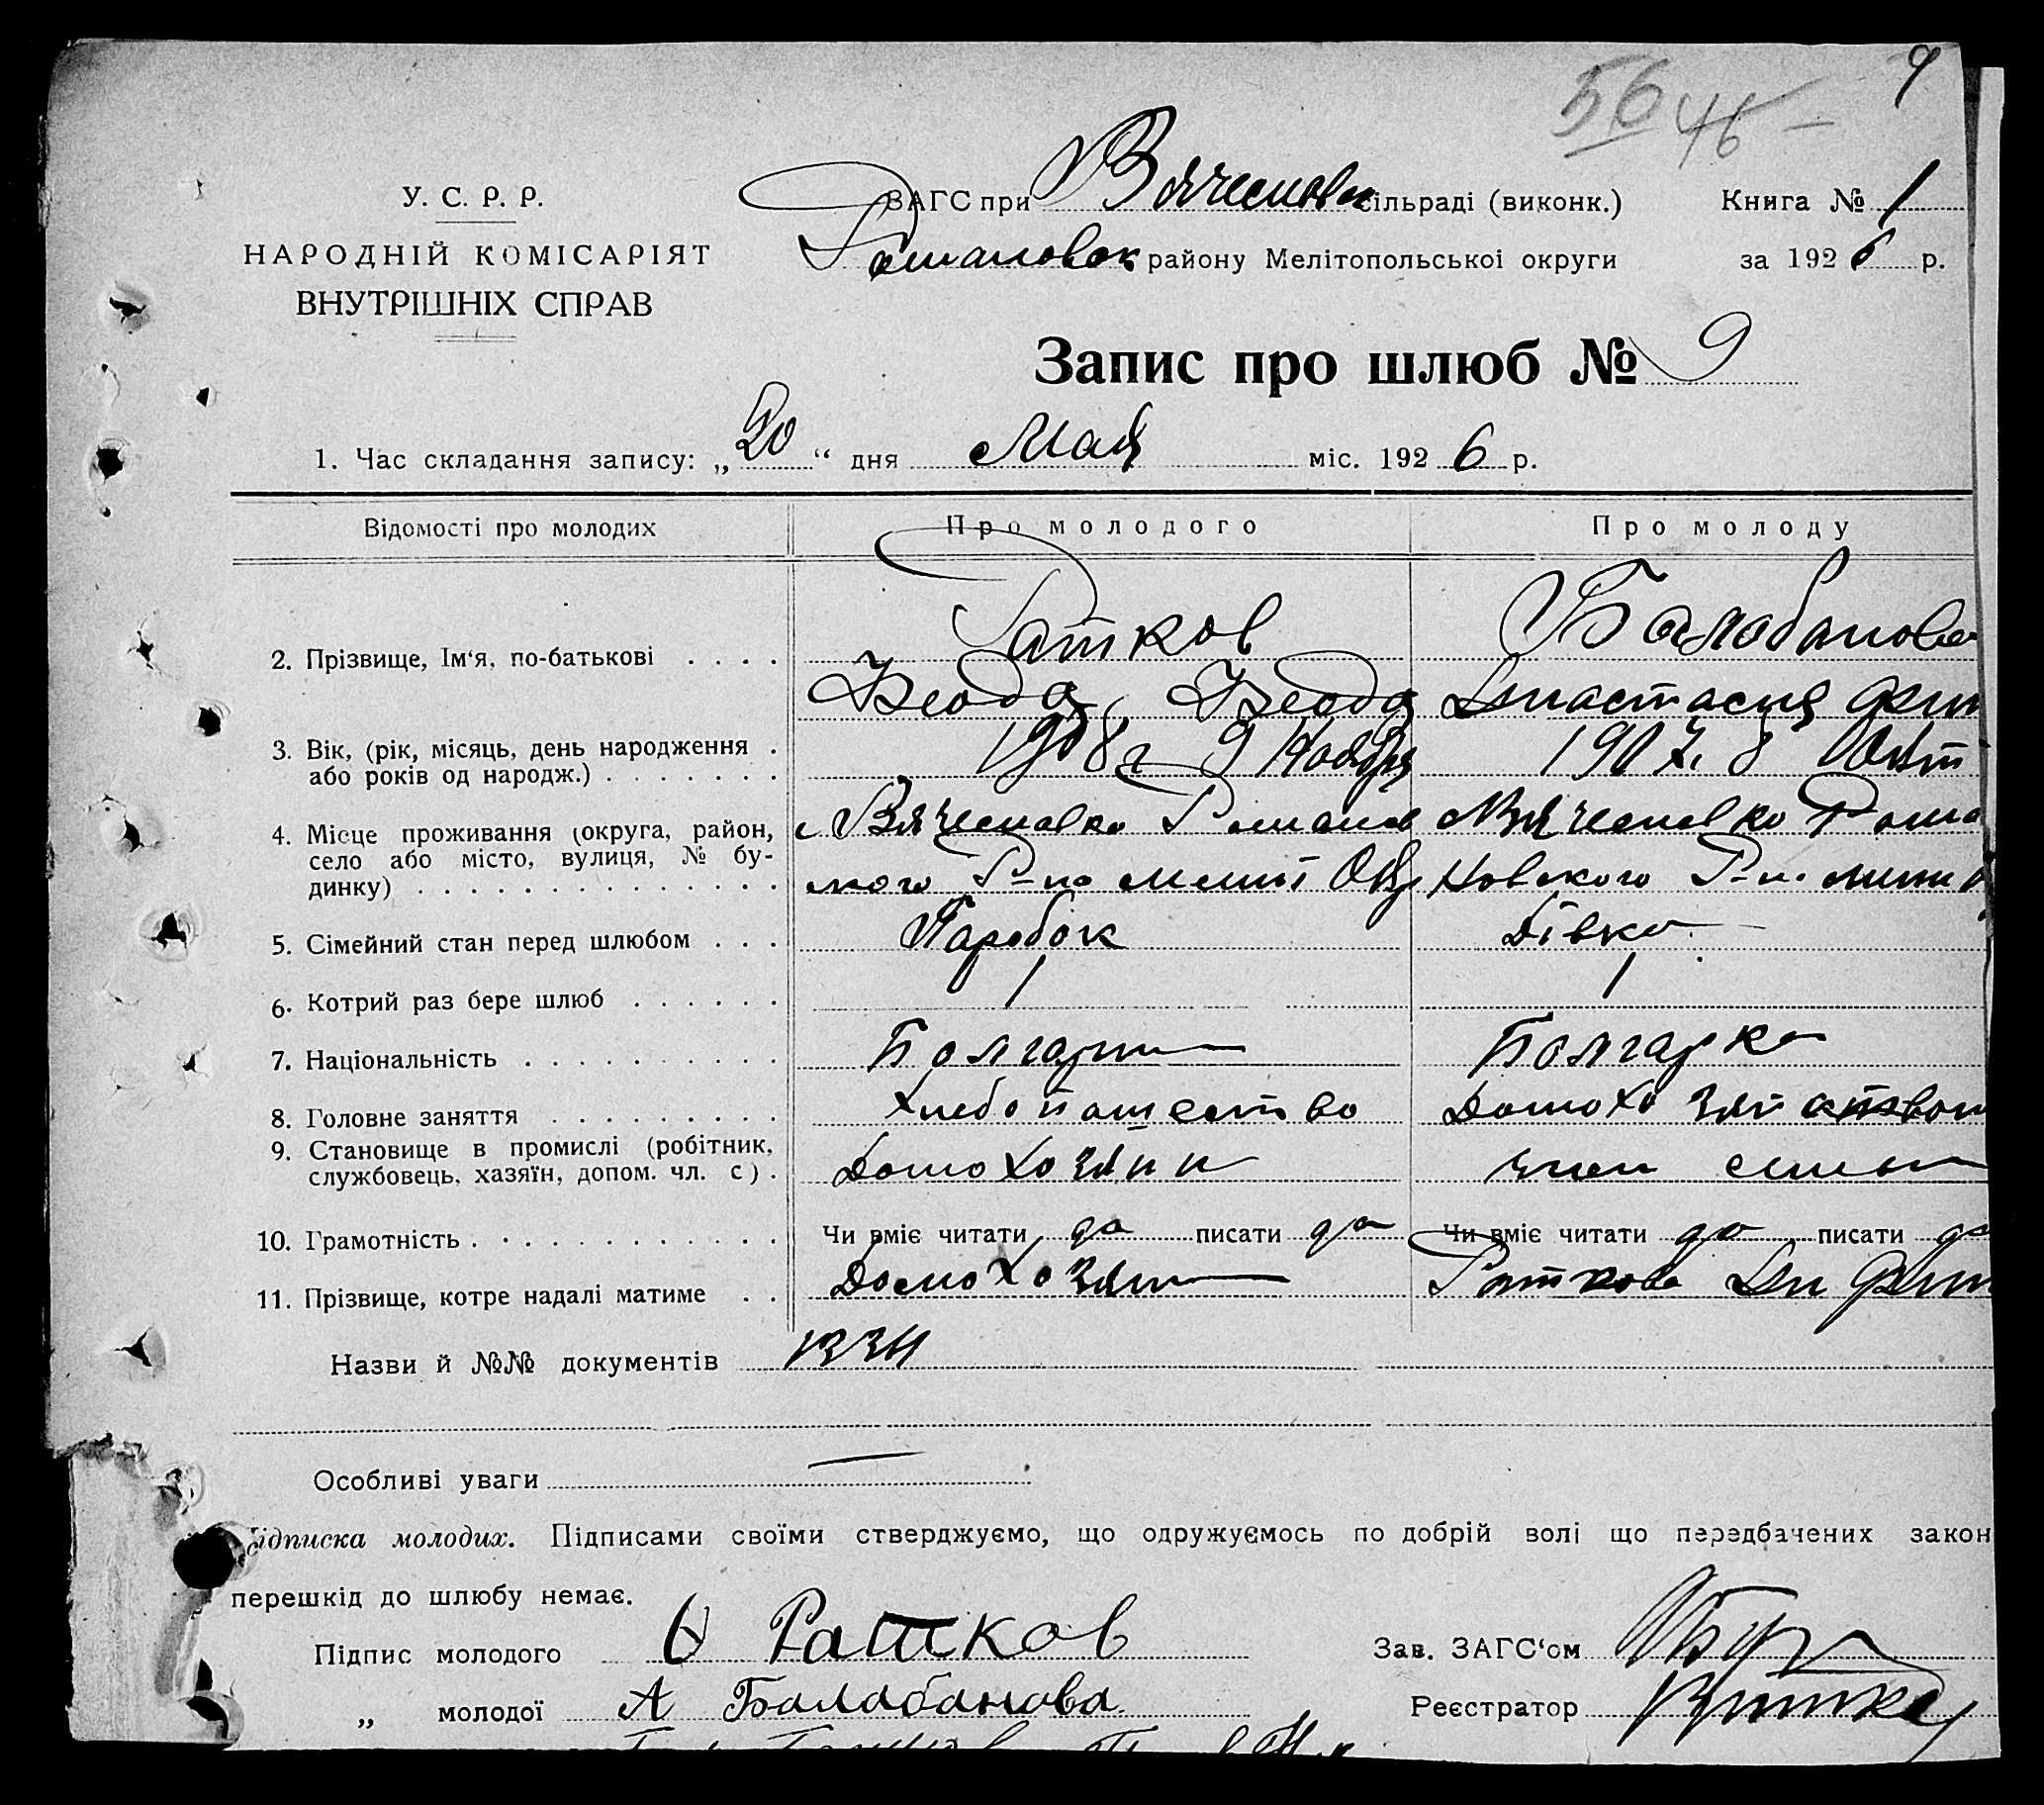 9
56 46 —
У. С. Р. Р.
НАРОДНІЙ КОМІСАРІЯТ
ВНУТРІШНІХ СПРАВ
ЗАГС при Вячесловк сільраді (виконк.) Книга № 1
Романовск району Мелітопольськоі округи за 1926 р.
Запис про шлюб № 9
1. Час складання запису: „20“ дня Мая міс. 1926 р.
Відомості про молодих Про молодого Про молоду
2. Прізвище, Ім‘я, по-батькові . . . . Ратков Балабанова
Анастасия
3. Вік, (рік, місяць, день народження . 1908 г 9 Ноября 1907. 8
або років од народж.) . . . . . . .
4. Місце проживання (округа, район, Вячесловка Романов Вячесловка Рома
село або місто, вулиця, № бу- ского Р-на Мелит Окр новского Р-н
динку) . . . . . . . . . . . . . .
5. Сімейний стан перед шлюбом . . . Паробок Дівка
6. Котрий раз бере шлюб . . . . . . 1 1
7. Національність . . . . . . . . . . Болгарин Болгарка
8. Головне заняття . . . . . . . . . Хлебопашество
9. Становище в промислі (робітник, Домохозяин член семьи
службовець, хазяїн, допом. чл. с) .
10. Грамотність . . . . . . . . . . . . Чи вміє читати да писати да Чи вміє читати да писати да
11. Прізвище, котре надалі матиме . . Домохозяин Раткова
Назви й №№ документів
Особливі уваги —
Підписка молодих. Підписами своїми стверджуємо, що одружуємось по добрій волі що передбачених закон
перешкід до шлюбу немає.
Підпис молодого Ратков Зав. ЗАГС‘ом
„ молодої А Балабанова Реєстратор